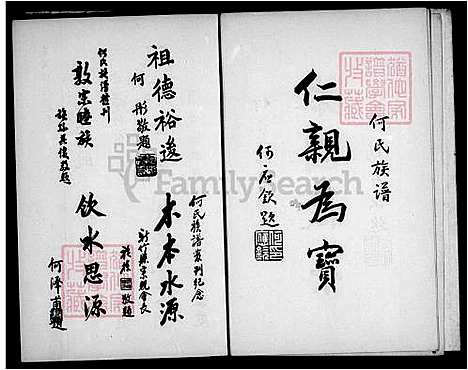 何氏族譜
仁親為寶
何應欽題
祖德裕逡
何彤敬題
何氏族譜發刊紀念
木本水源
新竹縣宗親會長
敬題
何氏族譜發刊
敦宗睦族
敬題
飲水思源
何
FamilySearch